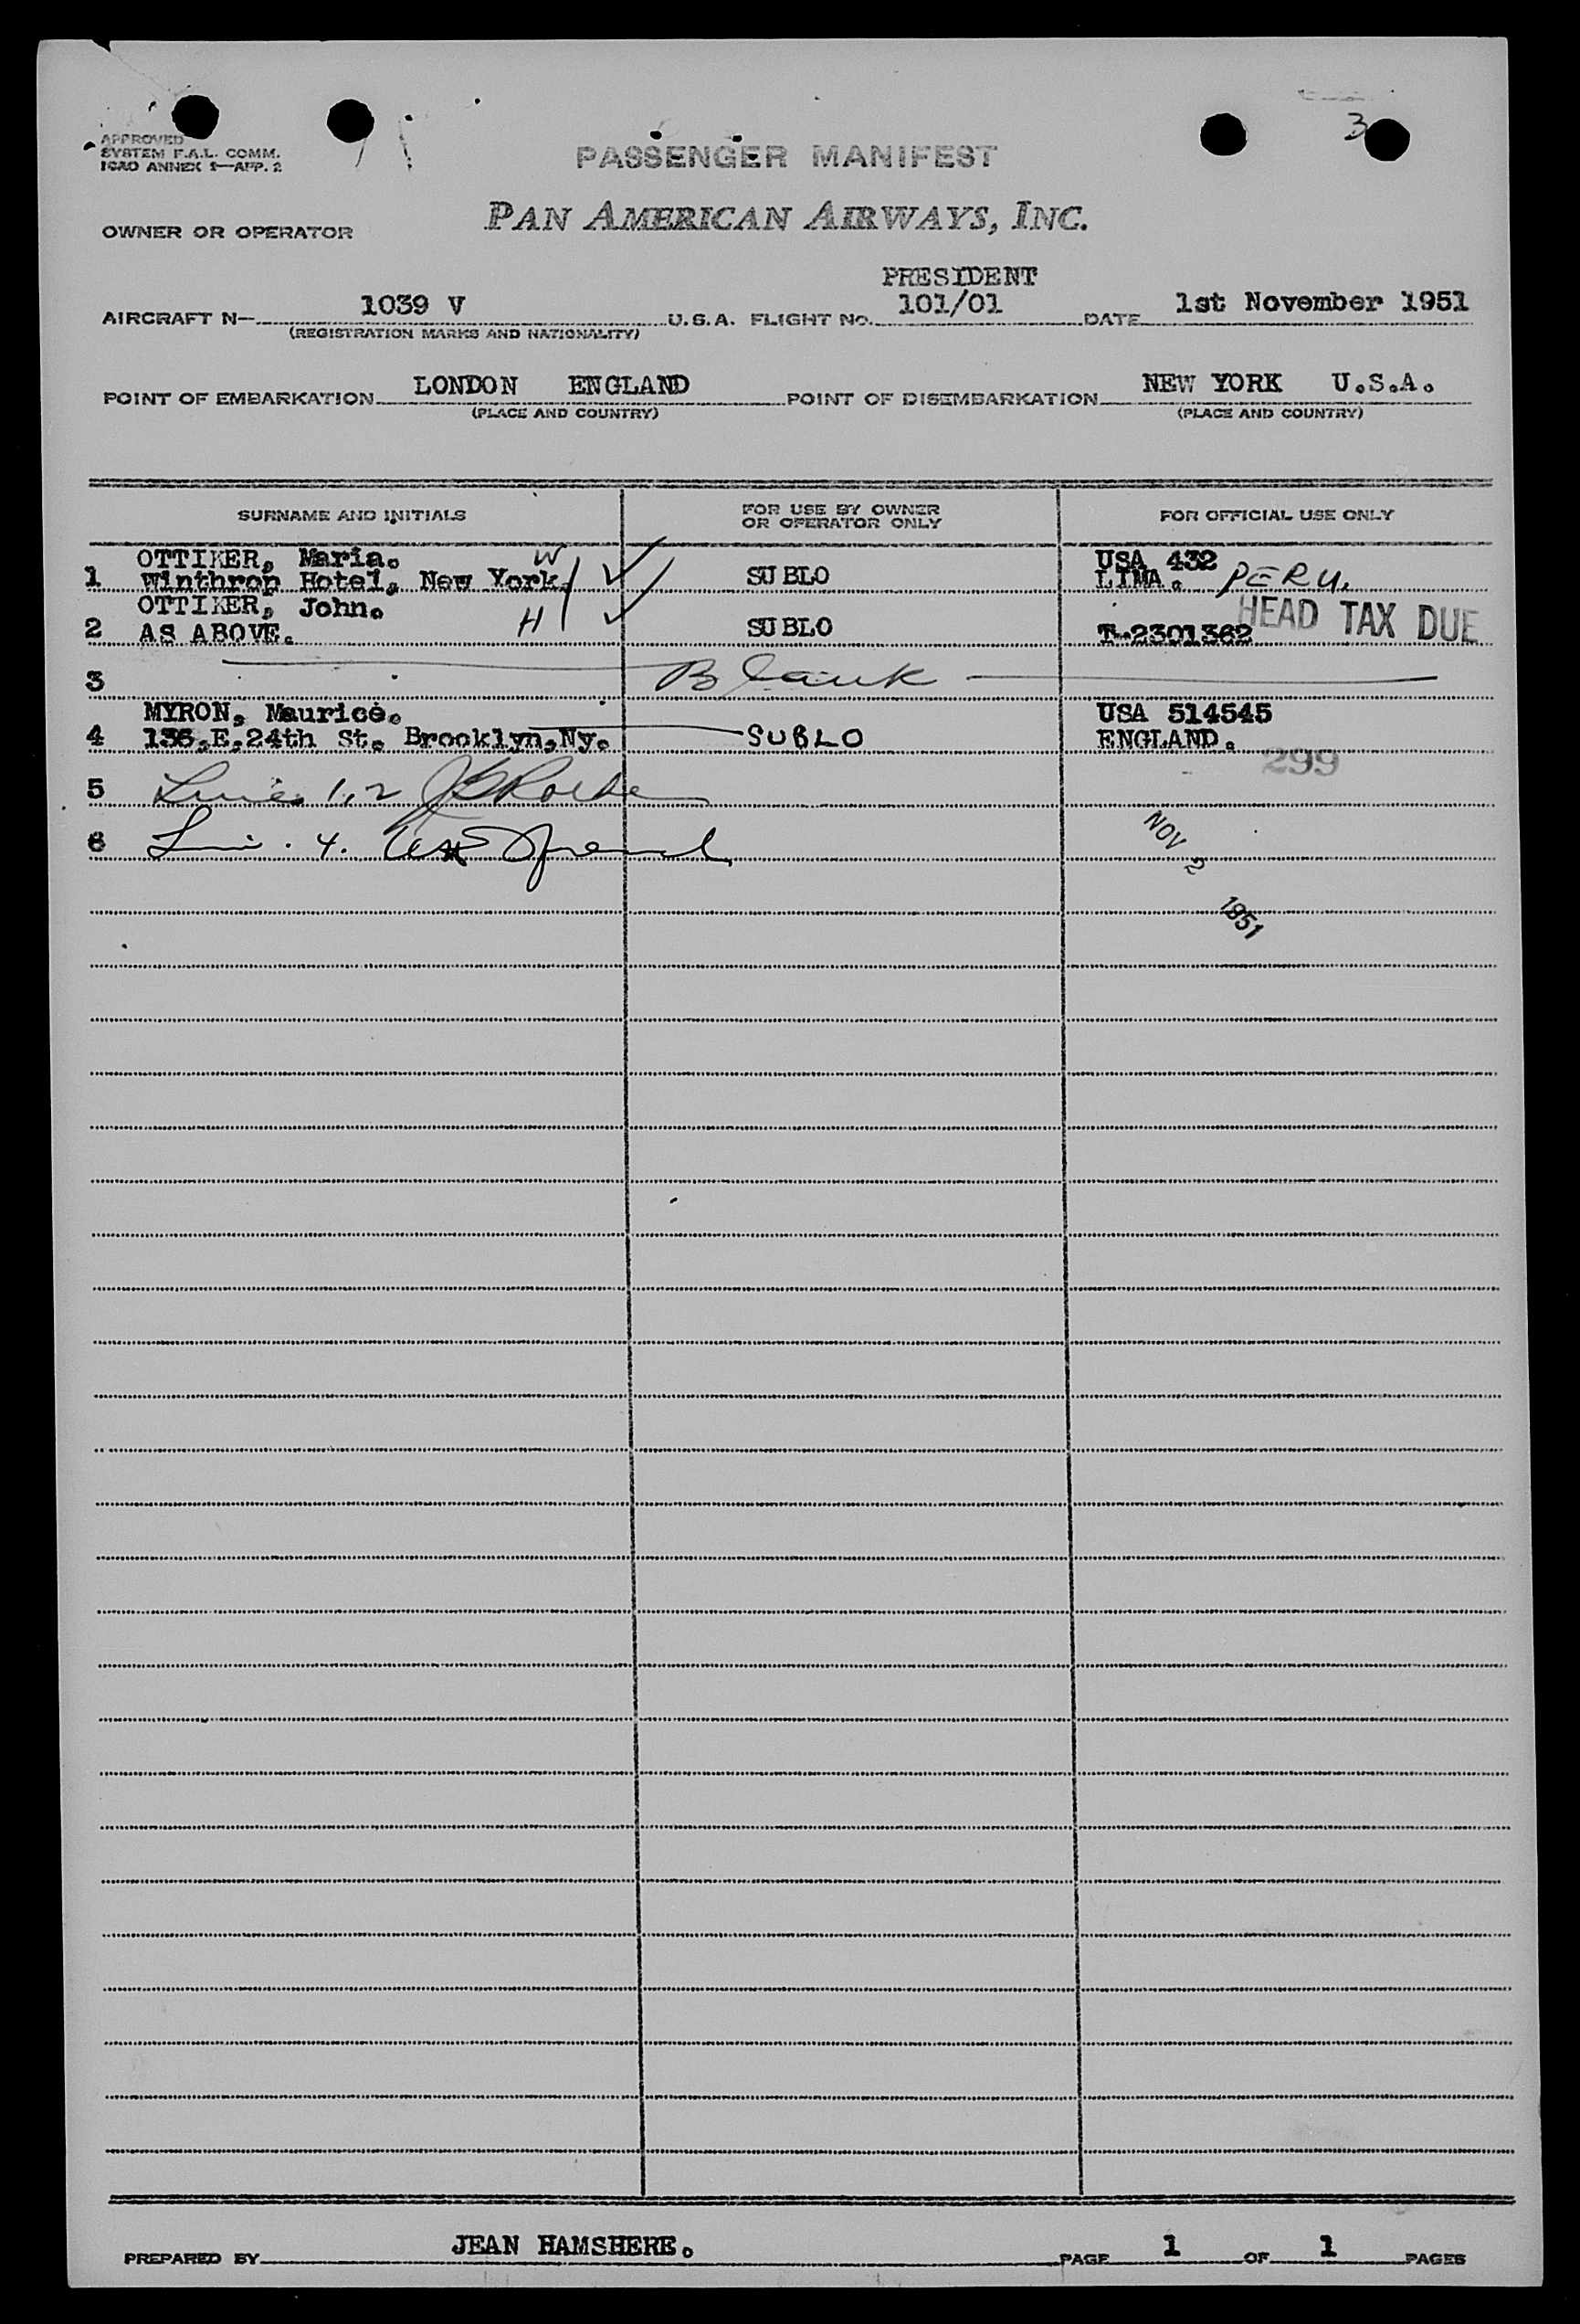 3
APPROVED
SYSTEM F.A.L. COMM.
ICAO ANNEX 1—APP. 2
PASSENGER MANIFEST
OWNER OR OPERATOR PAN AMERICAN AIRWAYS, INC.
PRESIDENT
AIRCRAFT N— 1039 V U.S.A. FLIGHT No. 101/01 DATE 1st November 1951
(REGISTRATION MARKS AND NATIONALITY)
POINT OF EMBARKATION LONDON ENGLAND POINT OF DISEMBARKATION NEW YORK U.S.A.
(PLACE AND COUNTRY) (PLACE AND COUNTRY)
SURNAME AND INITIALS FOR USE BY OWNER OR OPERATOR ONLY FOR OFFICIAL USE ONLY
OTTIKER, Maria. W USA 432
1 Winthrop Hotel, New York. SUBLO LIMA. PERU.
OTTIKER, John. HEAD TAX DUE
2 AS ABOVE. H SUBLO T-2301362
3 Blank
MYRON, Maurice. USA 514545
4 136.E.24th St. Brooklyn,Ny. SUBLO ENGLAND.
299
5 Line 1,2
6 Lin. 4.
NOV 2 1951
PREPARED BY JEAN HAMSHERE. PAGE 1 OF 1 PAGES